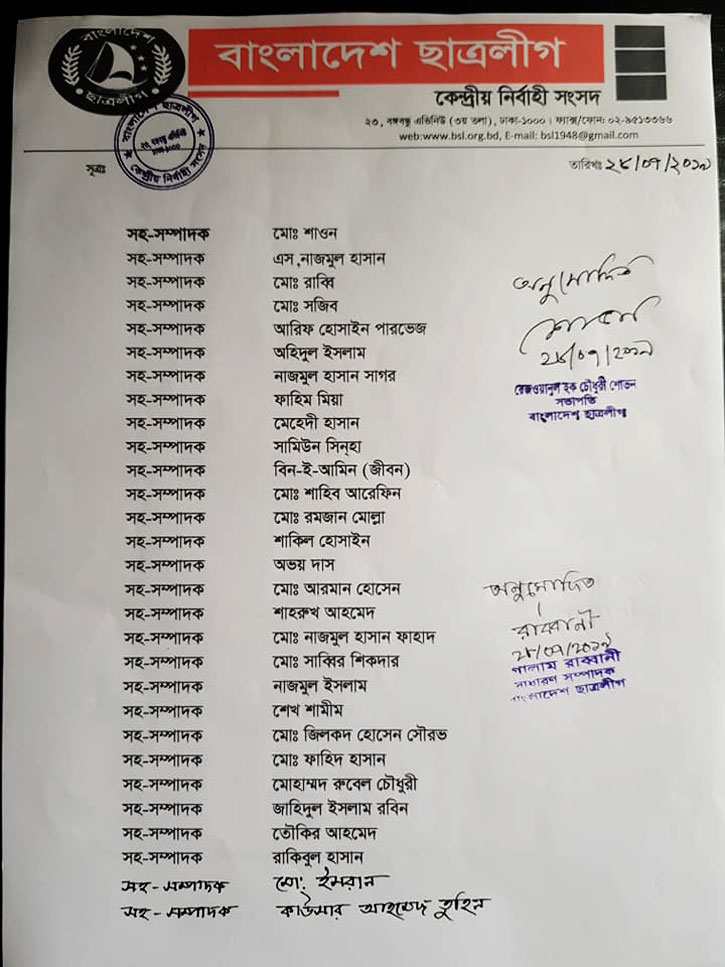 বাংলাদেশ
ছাত্রলীগ
বাংলাদেশ ছাত্রলীগ
কেন্দ্রীয় নির্বাহী সংসদ
২৩, বঙ্গবন্ধু এভিনিউ (৩য় তলা), ঢাকা-১০০০ । ফ্যাক্স/ফোন: ০২-৯৫১৩৩৬৬
web:www.bsl.org.bd, E-mail: bsl1948@gmail.com
বাংলাদেশ ছাত্রলীগ
২৩, বঙ্গবন্ধু এভিনিউ
ঢাকা-১০০০
কেন্দ্রীয় নির্বাহী সংসদ
সূত্রঃ
তারিখঃ ২৮/০৭/২০১৯
সহ-সম্পাদক মোঃ শাওন
সহ-সম্পাদক এস,নাজমুল হাসান
সহ-সম্পাদক মোঃ রাব্বি
সহ-সম্পাদক মোঃ সজিব
সহ-সম্পাদক আরিফ হোসাইন পারভেজ
সহ-সম্পাদক অহিদুল ইসলাম
সহ-সম্পাদক নাজমুল হাসান সাগর
সহ-সম্পাদক ফাহিম মিয়া
সহ-সম্পাদক মেহেদী হাসান
সহ-সম্পাদক সামিউন সিন্হা
সহ-সম্পাদক বিন-ই-আমিন (জীবন)
সহ-সম্পাদক মোঃ শাহিব আরেফিন
সহ-সম্পাদক মোঃ রমজান মোল্লা
সহ-সম্পাদক শাকিল হোসাইন
সহ-সম্পাদক অভয় দাস
সহ-সম্পাদক মোঃ আরমান হোসেন
সহ-সম্পাদক শাহরুখ আহমেদ
সহ-সম্পাদক মোঃ নাজমুল হাসান ফাহাদ
সহ-সম্পাদক মোঃ সাব্বির শিকদার
সহ-সম্পাদক নাজমুল ইসলাম
সহ-সম্পাদক শেখ শামীম
সহ-সম্পাদক মোঃ জিলকদ হোসেন সৌরভ
সহ-সম্পাদক মোঃ ফাহিদ হাসান
সহ-সম্পাদক মোহাম্মদ রুবেল চৌধুরী
সহ-সম্পাদক জাহিদুল ইসলাম রবিন
সহ-সম্পাদক তৌকির আহমেদ
সহ-সম্পাদক রাকিবুল হাসান
সহ-সম্পাদক মো: ইমরান
সহ-সম্পাদক কাউসার আহমেদ তুহিন
অনুমোদিত
শোভন
২৮/০৭/২০১৯
রেজওয়ানুল হক চৌধুরী শোভন
সভাপতি
বাংলাদেশ ছাত্রলীগ
অনুমোদিত
রাব্বানী
২৮/০৭/২০১৯
গোলাম রাব্বানী
সাধারণ সম্পাদক
বাংলাদেশ ছাত্রলীগ